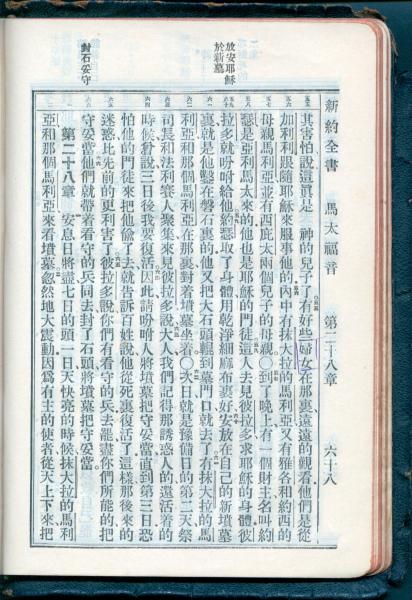 新約全書 馬太福音 第二十八章 六十八
其害怕說這眞是 神的兒子了有好些婦女在那裏遠遠的觀看他們是從
加利利跟隨耶穌來服事他的內中有抹大拉的馬利亞又有雅各和約西的
母親馬利亞並有西庇太兩個兒子的母親〇到了晚上有一個財主名叫約
瑟是亞利馬太來的他也是耶穌的門徒這人去見彼拉多求耶穌的身體彼
拉多就吩咐給他約瑟取了身體用乾淨細麻布裹好安放在自己的新墳墓
裏就是他鑿在磐石裏的他又把大石頭輥到墓門口就去了有抹大拉的馬
利亞和那個馬利亞在那裏對着墳墓坐着〇次日就是豫備日的第二天祭
司長和法利賽人聚集來見彼拉多說大人我們記得那誘惑人的還活着的
時候曾說三日後我要復活因此請吩咐人將墳墓把守妥當直到第三日恐
怕他的門徒來把他偷了去就告訴百姓說他從死裏復活了這樣那後來的
迷惑比先前的更利害了彼拉多說你們有看守的兵去罷盡你們所能的把
守妥當他們就帶着看守的兵同去封了石頭將墳墓把守妥當
第二十八章 安息日將盡七日的頭一日天快亮的時候抹大拉的馬利
亞和那個馬利亞來看墳墓忽然地大震動因爲有主的使者從天上下來把
放安耶穌
於新墓
封石妥守